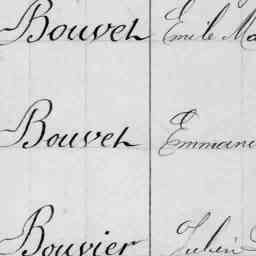 Bouvet Emile Ma
Bouvet Emmanu
Bouvier Julien